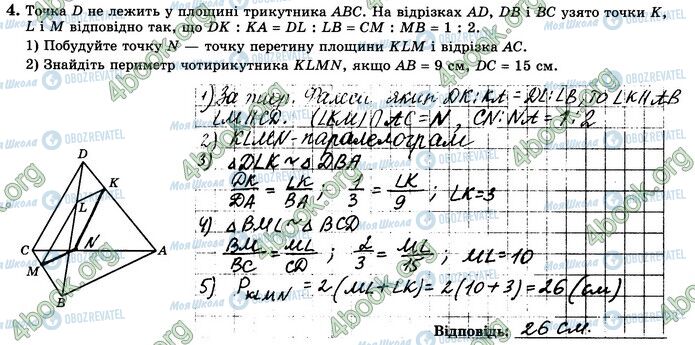 4. Точка D не лежить у площині трикутника ABC. На відрізках AD, DB і BC узято точки K,
L і M відповідно так, що DK : KA = DL : LB = CM : MB = 1 : 2.
1) Побудуйте точку N — точку перетину площини KLM і відрізка AC.
2) Знайдіть периметр чотирикутника KLMN, якщо AB = 9 см, DC = 15 см.
1) За теор. Фалеса якщо DK:KA=DL:LB, то LK∥AB
LM∥CD. (LKM)∩AC=N, CN:NA=1:2
2) KLMN-паралелограм
3) △DLK~△DBA
DK/DA = LK/BA; 1/3 = LK/9; LK=3
4) △BML~△BCD
BM/BC = ML/CD; 2/3 = ML/15; ML=10
5) P KLMN = 2(ML+LK)=2(10+3)=26(см)
Відповідь: 26 см.
D
K
L
C
N
A
M
B
4book.org
Моя Школа
OBOZREVATEL